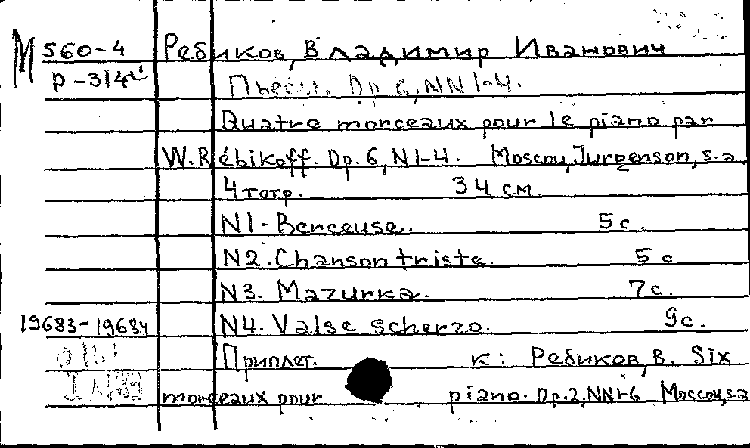 М 560-4 Ребиков, Владимир Иванович
Р-314
Пьесы. Op. 6, NN 1-4.
Quatre morceaux pour le piano par
W. Rébikoff. Op. 6, N1-4. Moscou, Jurgenson, s.a.
4 тетр. 34 см.
N1. Berceuse. 5 с.
N2. Chanson triste. 5 с
N3. Mazurka. 7с.
19683-19684 N4. Valse scherzo. 9с.
Приплет. к: Ребиков, В. Six
morceaux pour piano. Op. 2, NN1-6 Moscou, s.a